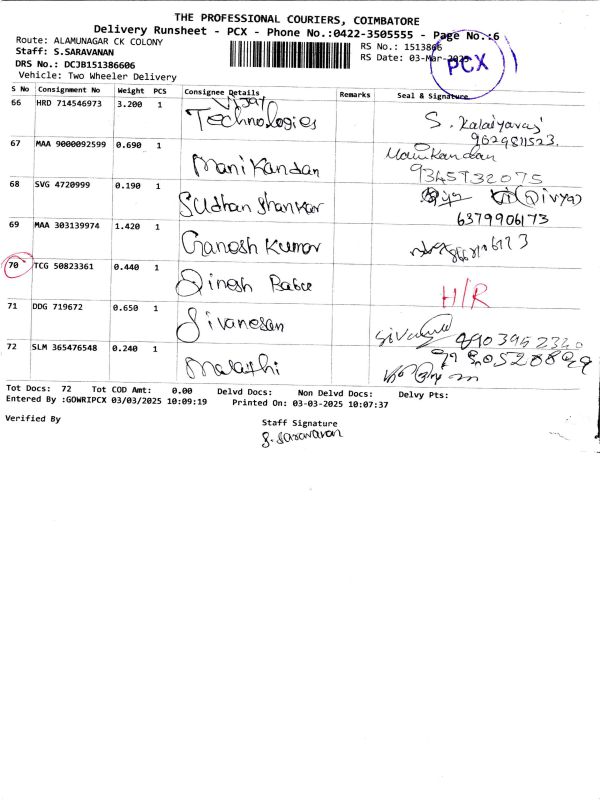 THE PROFESSIONAL COURIERS, COIMBATORE
Delivery Runsheet - PCX - Phone No.:0422-3505555 - Page No.:6
Route: ALAMUNAGAR CK COLONY
RS No.: 1513866
Staff: S.SARAVANAN
RS Date: 03-Mar-2025
PCX
DRS No.: DCJB151386606
Vehicle: Two Wheeler Delivery
S No Consignment No Weight PCS Consignee Details Remarks Seal & Signature
66 HRD 714546973 3.200 1 Vijay Technologies S. Kalaiyarasi
9629811523.
67 MAA 9000092599 0.690 1 Mani Kandan Manikandan
9345932075
68 SVG 4720999 0.190 1 Sudhan Shankar (Divya)
6379906173
69 MAA 303139974 1.420 1 Ganesh Kumar
70 TCG 50823361 0.440 1 Dinesh Babu H/R
71 DDG 719672 0.650 1 Sivanesan
72 SLM 365476548 0.240 1 Malathi
Tot Docs: 72 Tot COD Amt: 0.00 Delvd Docs: Non Delvd Docs: Delvy Pts:
Entered By :GOWRIPCX 03/03/2025 10:09:19 Printed On: 03-03-2025 10:07:37
Verified By
Staff Signature
S. Saravanan